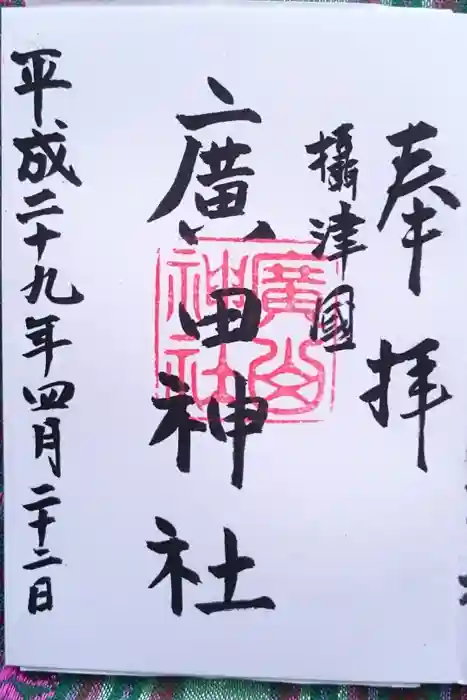 奉拝
攝津國
廣田神社
廣田神社
平成二十九年四月二十二日